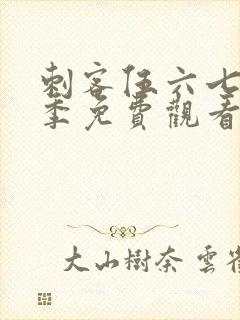 刺客伍六七
季免費觀看
大山樹奈 雲雀